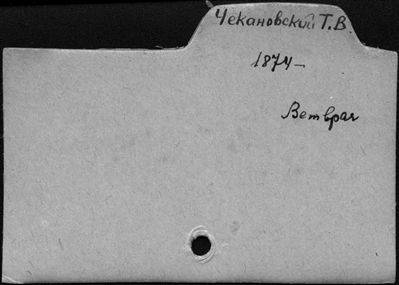 Чекановский Т.В.
1874-
Ветврач